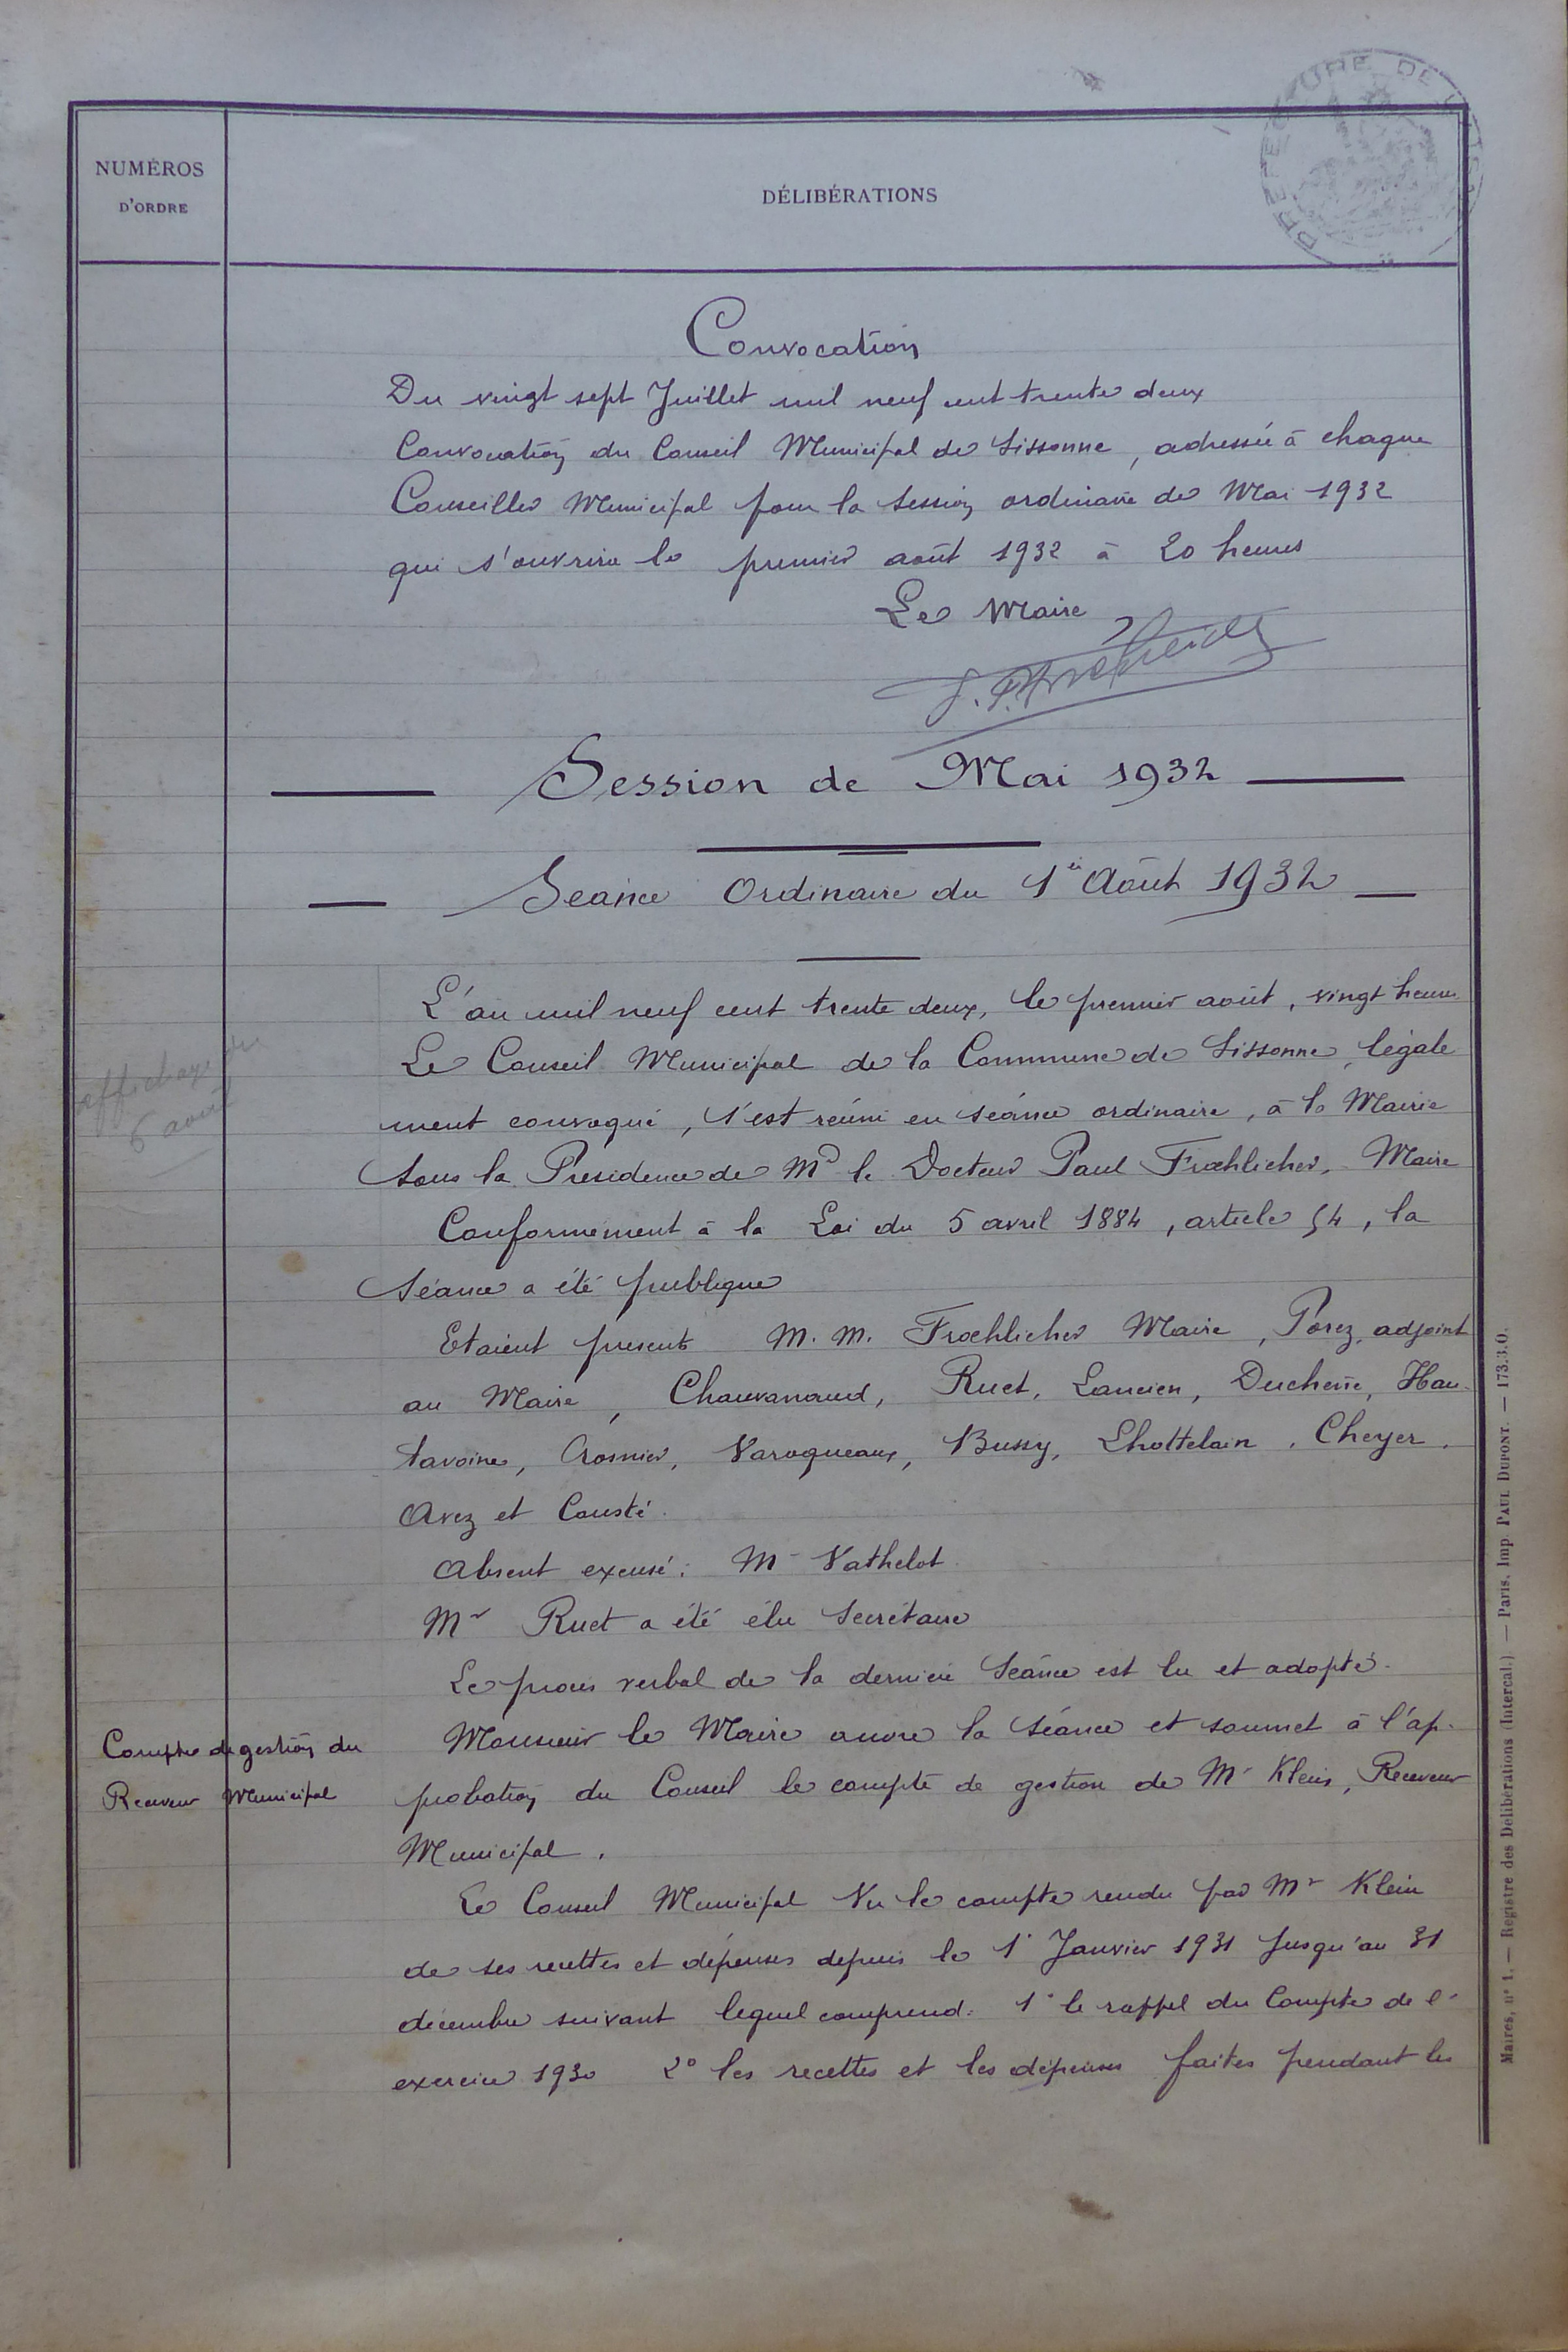 PREFECTURE DE
NUMÉROS
D'ORDRE
DÉLIBÉRATIONS
Convocation
Du vingt sept Juillet mil neuf cent trente deux
Convocation du Conseil Municipal de Sissonne, adressée à chaque
Conseiller Municipal pour la Session ordinaire de Mai 1932
qui s'ouvrira le premier août 1932 à 20 heures
Le Maire
Session de Mai 1932
Séance Ordinaire du 1er Août 1932
L'an mil neuf cent trente deux, le premier août, vingt heures
Le Conseil Municipal de la Commune de Sissonne, légale
ment convoqué, s'est réuni en séance ordinaire, à la Mairie
affichage du
6 août
Sous la Présidence de Mr le Docteur Paul Froehlicher, Maire
Conformément à la Loi du 5 avril 1884, article 54, la
Séance a été publique
Etaient présents M.M. Froehlicher Maire, Porez, adjoint
au Maire, Chauvanaud, Ruet, Lancien, Duchene, Hau-
tavoine, Crosnier, Varoqueaux, Bussy, Lhottelain, Cheyer,
Avez et Cousté.
Absent excusé: Mr Vathelot
Mr Ruet a été élu Secrétaire
Le procès verbal de la dernière Séance est lu et adopté.
Compte de gestion du
Receveur Municipal
Monsieur le Maire ouvre la Séance et soumet à l'ap-
probation du Conseil le compte de gestion de Mr Klein, Receveur
Municipal.
Le Conseil Municipal Vu le compte rendu par Mr Klein
de ses recettes et dépenses depuis le 1° Janvier 1931 Jusqu'au 31
décembre suivant lequel comprend: 1° le rappel du Compte de l'
exercice 1930 2° les recettes et les dépenses faites pendant les
Maires, n° 1. — Registre des Délibérations (Intercal.) — Paris, Imp. PAUL DUPONT. — 173.3.0.